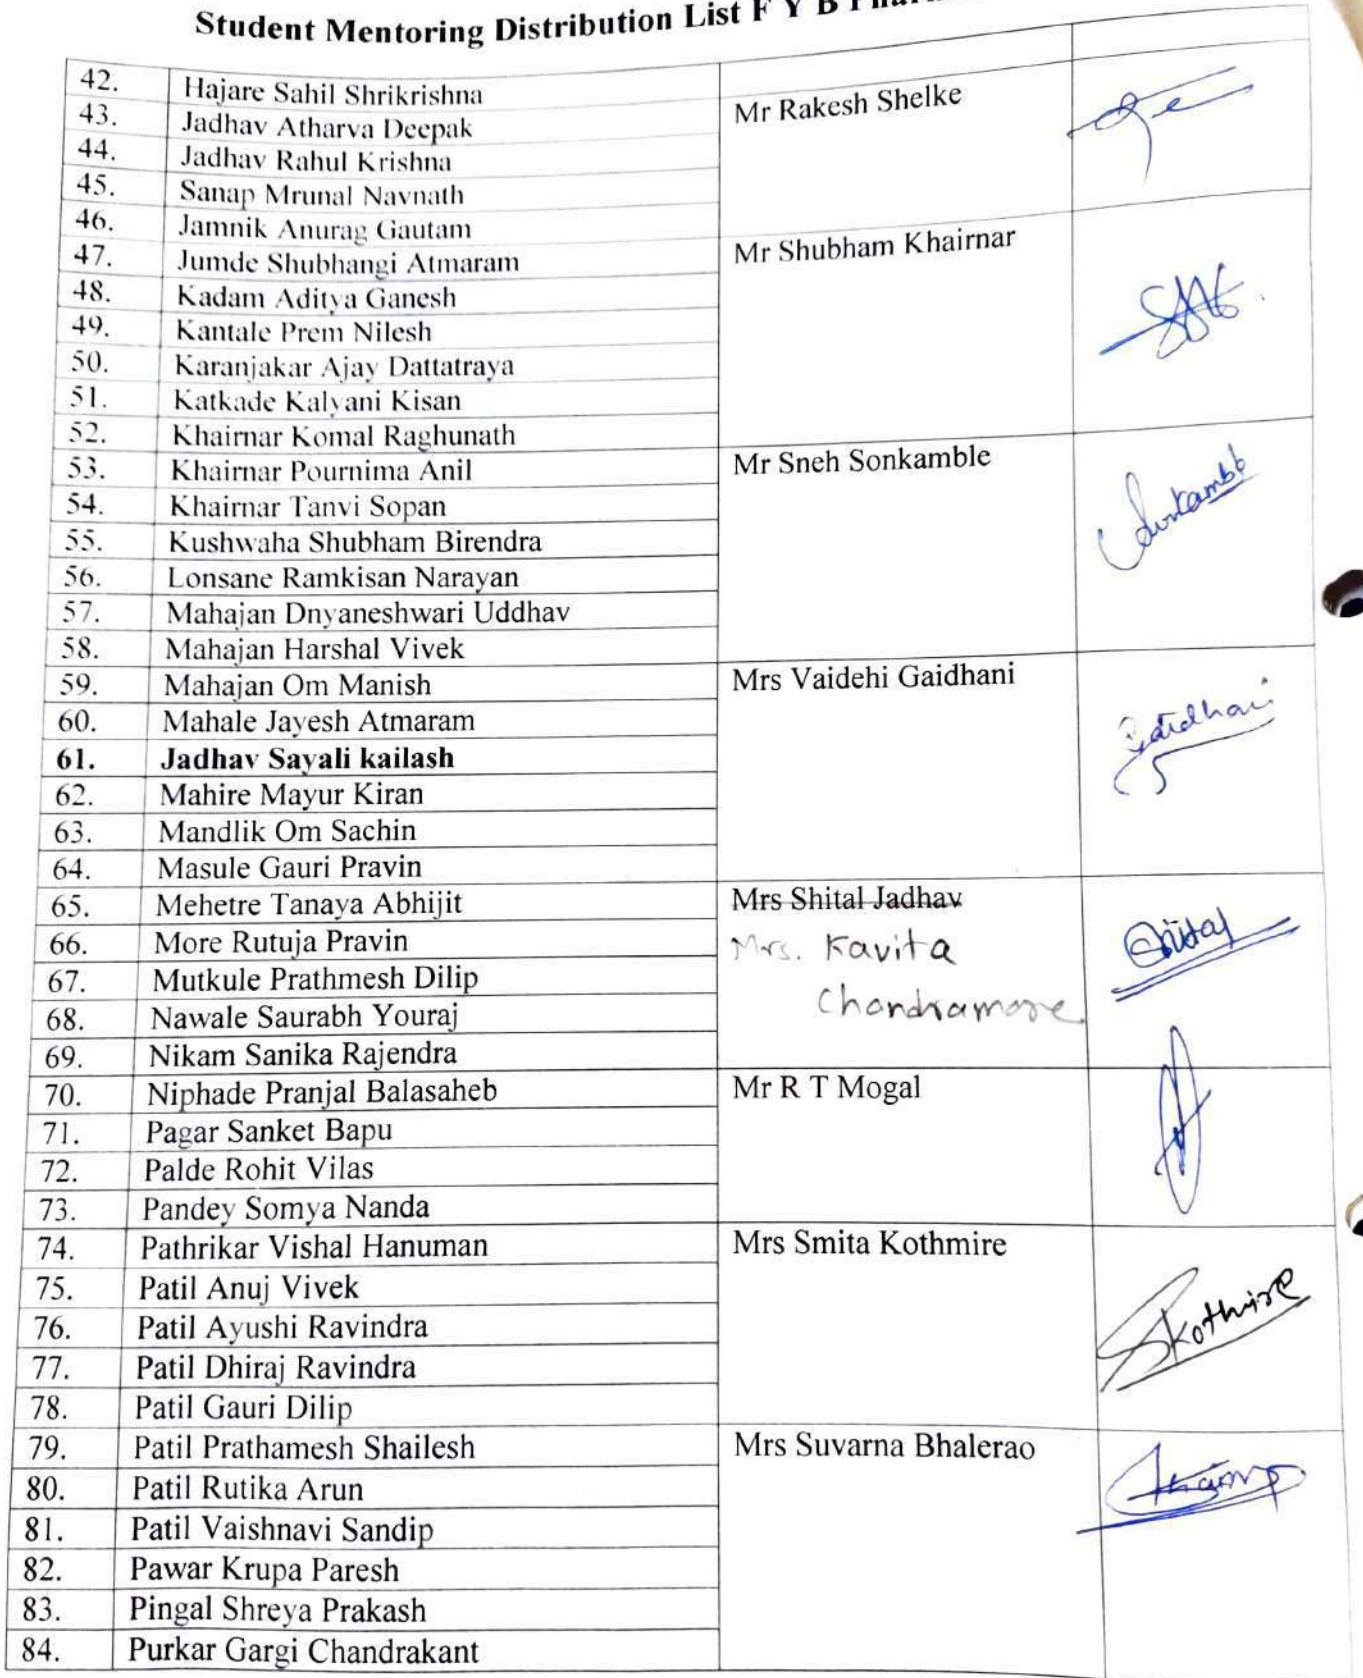 Student Mentoring Distribution List F Y B
42. Hajare Sahil Shrikrishna
Mr Rakesh Shelke
43. Jadhav Atharva Deepak
44. Jadhav Rahul Krishna
45. Sanap Mrunal Navnath
46. Jamnik Anurag Gautam
47. Jumde Shubhangi Atmaram
Mr Shubham Khairnar
48. Kadam Aditya Ganesh
49. Kantale Prem Nilesh
50. Karanjakar Ajay Dattatraya
51. Katkade Kalyani Kisan
52. Khairnar Komal Raghunath
53. Khairnar Pournima Anil
Mr Sneh Sonkamble
54. Khairnar Tanvi Sopan
55. Kushwaha Shubham Birendra
56. Lonsane Ramkisan Narayan
57. Mahajan Dnyaneshwari Uddhav
58. Mahajan Harshal Vivek
59. Mahajan Om Manish
Mrs Vaidehi Gaidhani
60. Mahale Jayesh Atmaram
Gaidhani
61. Jadhav Sayali kailash
62. Mahire Mayur Kiran
63. Mandlik Om Sachin
64. Masule Gauri Pravin
65. Mehetre Tanaya Abhijit
Mrs Shital Jadhav
66. More Rutuja Pravin
Mrs. Kavita
Chandramore
67. Mutkule Prathmesh Dilip
68. Nawale Saurabh Youraj
69. Nikam Sanika Rajendra
70. Niphade Pranjal Balasaheb
Mr R T Mogal
71. Pagar Sanket Bapu
72. Palde Rohit Vilas
73. Pandey Somya Nanda
74. Pathrikar Vishal Hanuman
Mrs Smita Kothmire
75. Patil Anuj Vivek
76. Patil Ayushi Ravindra
SKothmire
77. Patil Dhiraj Ravindra
78. Patil Gauri Dilip
79. Patil Prathamesh Shailesh
Mrs Suvarna Bhalerao
80. Patil Rutika Arun
81. Patil Vaishnavi Sandip
82. Pawar Krupa Paresh
83. Pingal Shreya Prakash
84. Purkar Gargi Chandrakant